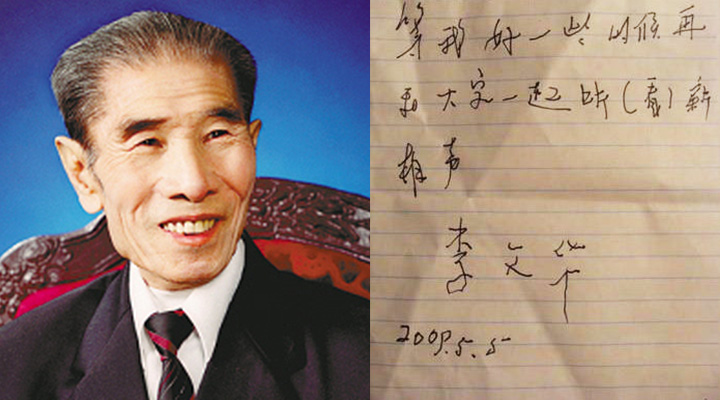 等我好一些时候再
和大家一起听(看)新
相声
李文华
2009.5.5